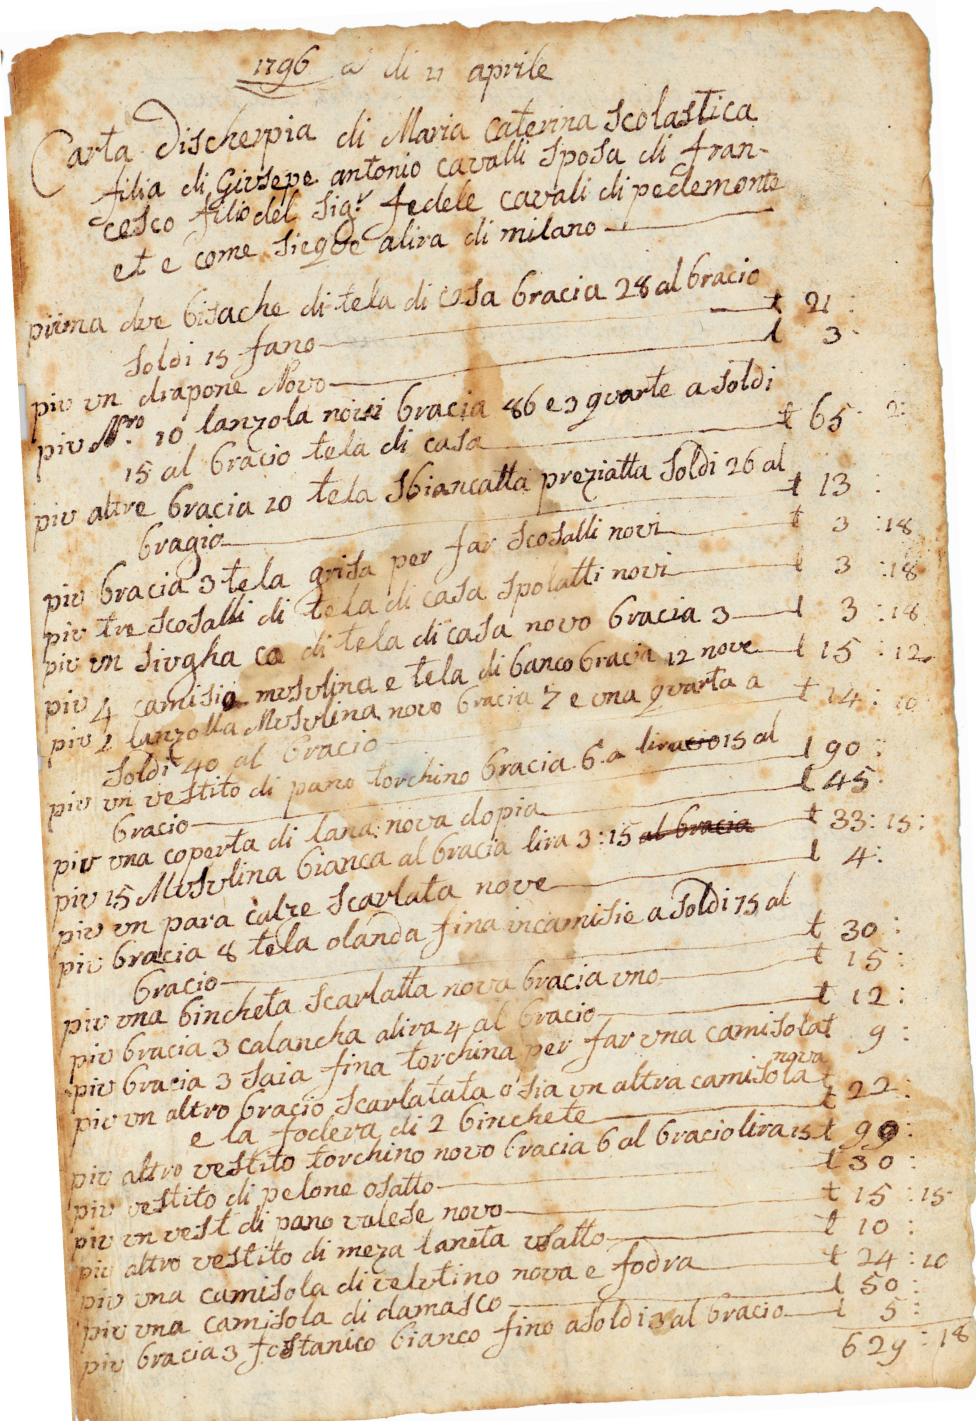 1796 a di 11 aprile
Carta Discherpia di Maria Caterina Scolastica
filia di Giusepe antonio cavalli sposa di fran-
cesco filio del Sigr. fedele cavali di pedemonte
et e come siegue alira di milano
prima due bisache di tela di casa bracia 28 al bracio
soldi 15 fano ł 21 :
piu un drapone Novo ł 3 :
piu Nro. 10 lanzola novi bracia 86 e 3 quarte a soldi
15 al bracio tela di casa ł 65 : 2 :
piu altre bracia 10 tela sbiancatta preziatta soldi 26 al
bragio ł 13 :
piu bracia 3 tela grisa per far scosalli novi ł 3 : 18
piu tre scosalli di tela di casa spolatti novi ł 3 : 18
piu un siugha ca di tela di casa novo bracia 3 ł 3 : 18
piu 4 camisie musulina e tela di banco bracia 12 nove ł 15 : 12
piu 2 lanzolla Musulina nove bracia 7 e una quarta a
soldi 40 al bracio ł 14 : 10
piu un vestito di pano torchino bracia 6 a lira 15 al
bracio ł 90 :
piu una coperta di lana nova dopia ł 45
piu 15 Musulina bianca al bracia lira 3 : 15 al bracia ł 33 : 15 :
piu un para calze scarlata nove ł 4 :
piu bracia 8 tela olanda fina in camisie a soldi 75 al
bracio ł 30 :
piu una bincheta scarlatta nova bracia uno ł 15 :
piu bracia 3 calancha alira 4 al bracio ł 12 :
piu bracia 3 saia fina torchina per far una camisola ł 9 :
piu un altro bracio scarlatata o sia un altra camisola nova
e la fodera di 2 binchete ł 22 :
piu altro vestito torchino novo bracia 6 al bracio lira 15 ł 90 :
piu vestito di pelone osatto ł 30 :
piu un vest di pano valese novo ł 15 : 15
piu altro vestito di meza laneta usatto ł 10 :
piu una camisola di velutino nova e fodra ł 24 : 10
piu una camisola di damasco ł 50 :
piu bracia 3 fostanico bianco fino a soldi 3 al bracio ł 5 :
629 : 18